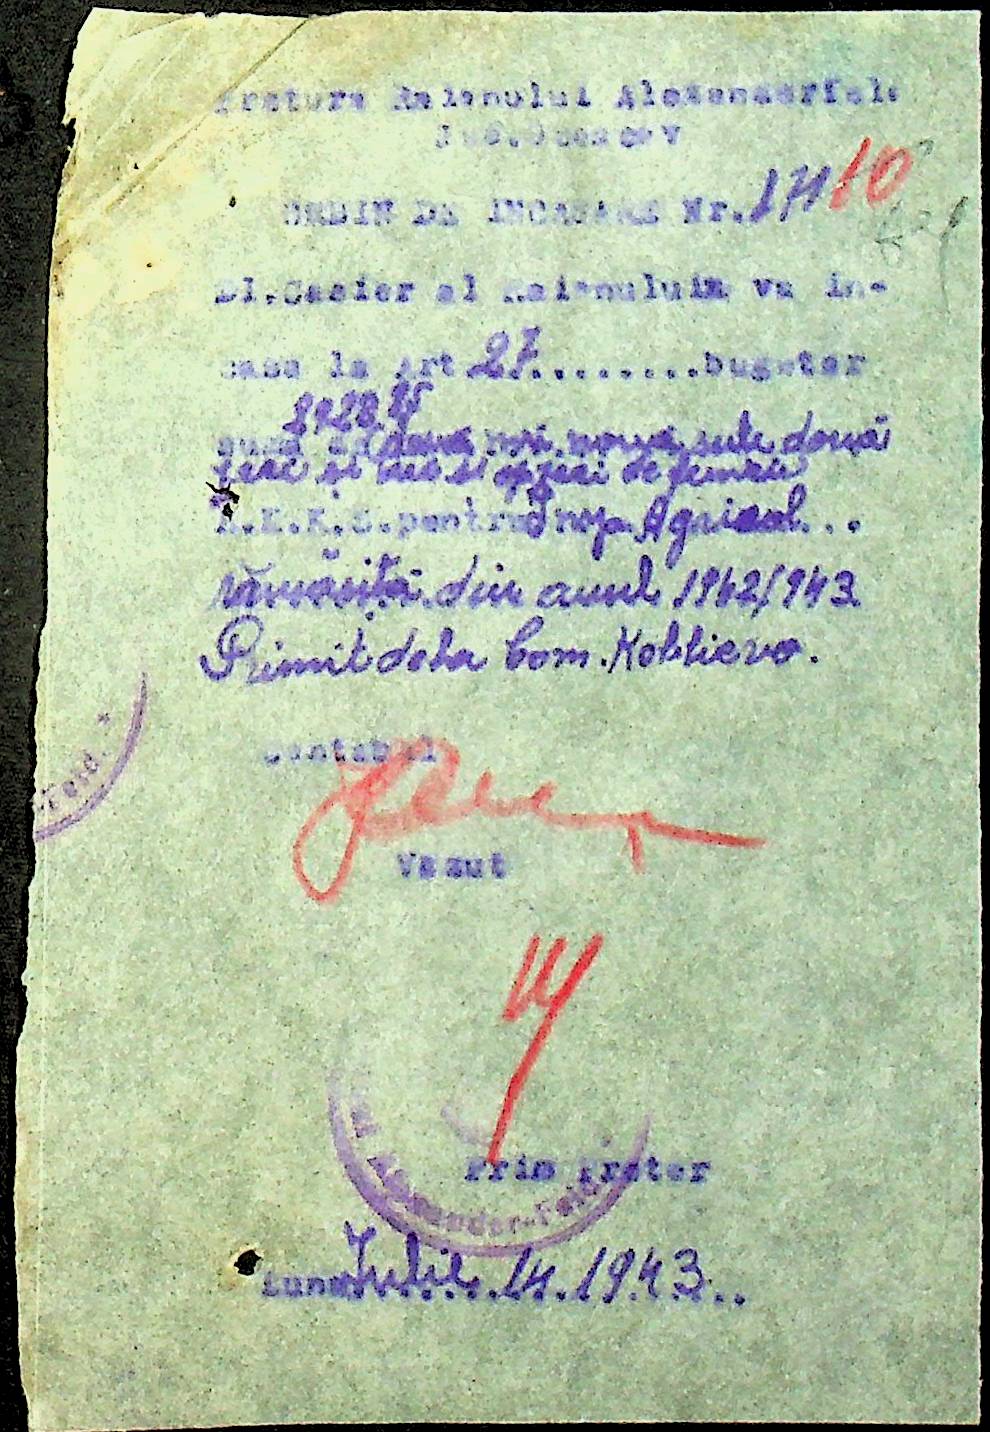 Pretura Raionului Alexanderfeld
Jud. Oceacov
ORDIN DE INCASARE Nr. 171 10
Dl.Casier al Raionuluim va in-
casa la Art 27.........bugetar
2928
suma de două mii nouă sute două
zeci și
R.K.K.S. pentru Agricol...
din anul 1942/943
Primit dela Com. Kobliewo.
Contabil
Vazut
Prim Pretor
Luna Iulie 14.1943...
-Feld. *
Alexander-Feld